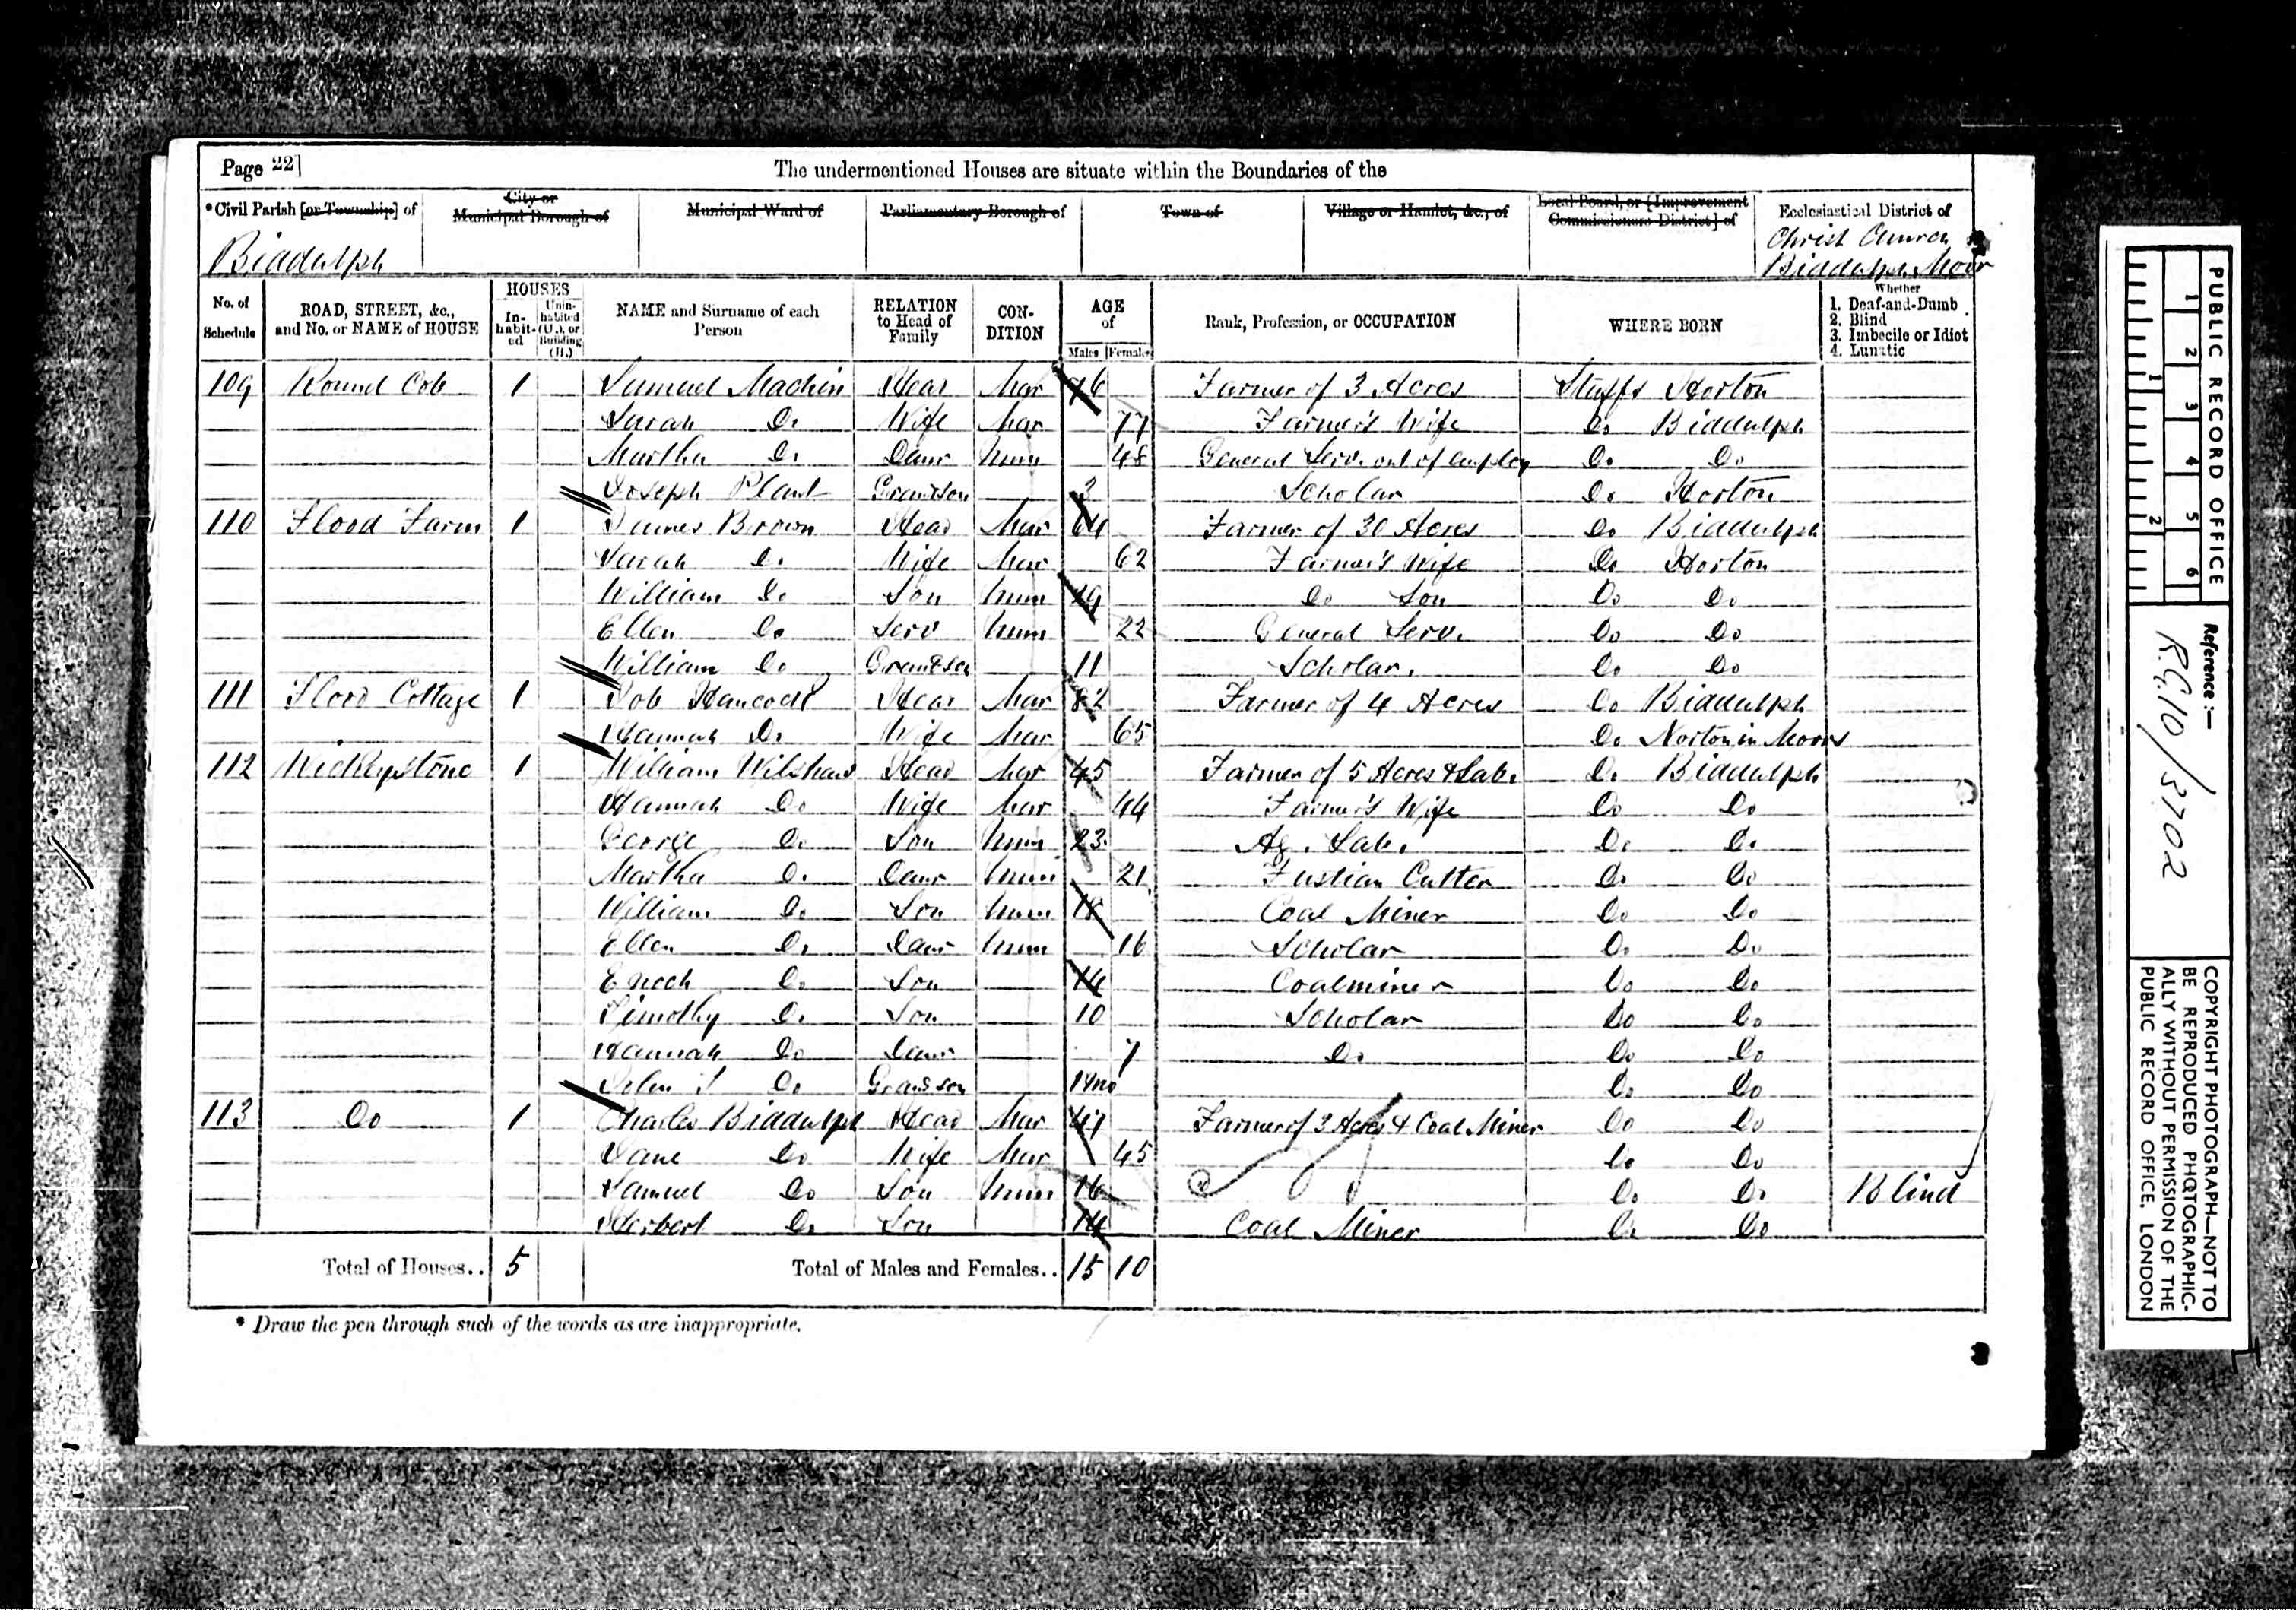 Page 22]
The undermentioned Houses are situate within the Boundaries of the
*Civil Parish [or Township] of
City or Municipal Borough of
Municipal Ward of
Parliamentary Borough of
Town of
Village or Hamlet, &c., of
Local Board, or [Improvement Commissioners District] of
Ecclesiastical District of
Biddulph
Christ Church
Biddulph Moor
No. of Schedule
ROAD, STREET, &c., and No. or NAME of HOUSE
HOUSES
In-habit-ed
Unin-habited (U.), or Building (B.)
NAME and Surname of each Person
RELATION to Head of Family
CON-DITION
AGE of
Males
Females
Rank, Profession, or OCCUPATION
WHERE BORN
Whether
1. Deaf-and-Dumb
2. Blind
3. Imbecile or Idiot
4. Lunatic
109 Round Cob 1 Samuel Machin Head Mar 76 Farmer of 3 Acres Staffs Horton
Sarah Do Wife Mar 77 Farmer's Wife Do Biddulph
Martha Do Daur Unm 48 General Serv. out of employ Do Do
Joseph Plant Grandson 3 Scholar Do Horton
110 Flood Farm 1 James Brown Head Mar 64 Farmer of 30 Acres Do Biddulph
Sarah Do Wife Mar 62 Farmer's Wife Do Horton
William Do Son Unm 19 Do Son Do Do
Ellen Do Serv Unm 22 General Serv. Do Do
William Do Grandson 11 Scholar. Do Do
111 Flood Cottage 1 Job Hancock Head Mar 82 Farmer of 4 Acres Do Biddulph
Hannah Do Wife Mar 65 Do Norton in Moors
112 Wickeystone 1 William Wilshaw Head Mar 45 Farmer of 5 Acres & Lab. Do Biddulph
Hannah Do Wife Mar 44 Farmer's Wife Do Do
George Do Son Unm 23 Ag. Lab. Do Do
Martha Do Daur Unm 21 Fustian Cutter Do Do
William Do Son Unm 18 Coal Miner Do Do
Ellen Do Daur Unm 16 Scholar Do Do
Enoch Do Son 14 Coalminer Do Do
Timothy Do Son 10 Scholar Do Do
Hannah Do Daur 7 Do Do Do
John Do Grandson Do Do
113 Do 1 Charles Biddulph Head Mar 41 Farmer of 3 Acres & Coal Miner Do Do
Jane Do Wife Mar 45 Do Do
Samuel Do Son Unm 16 Do Do Blind
Herbert Do Son 14 Coal Miner Do Do
Total of Houses.. 5
Total of Males and Females.. 15 10
* Draw the pen through such of the words as are inappropriate.
PUBLIC RECORD OFFICE
1 2 3 4 5 6
1 2
Reference :-
R.G.10/3702
COPYRIGHT PHOTOGRAPH—NOT TO BE REPRODUCED PHOTOGRAPHIC-ALLY WITHOUT PERMISSION OF THE PUBLIC RECORD OFFICE, LONDON